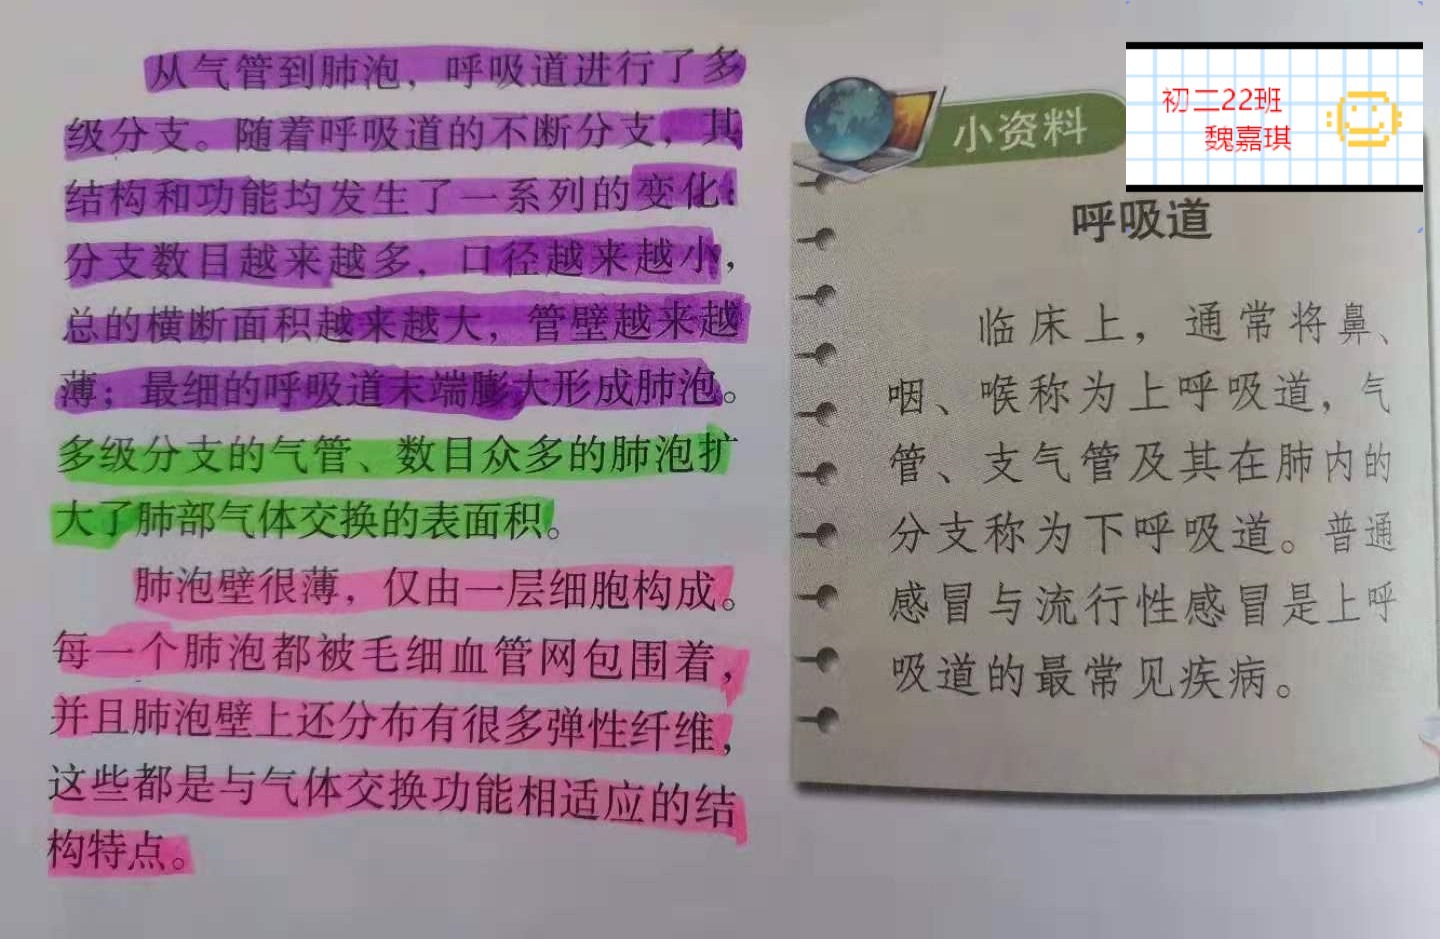 从气管到肺泡，呼吸道进行了多
级分支。随着呼吸道的不断分支，其
结构和功能均发生了一系列的变化：
分支数目越来越多，口径越来越小，
总的横断面积越来越大，管壁越来越
薄；最细的呼吸道末端膨大形成肺泡。
多级分支的气管、数目众多的肺泡扩
大了肺部气体交换的表面积。
肺泡壁很薄，仅由一层细胞构成。
每一个肺泡都被毛细血管网包围着，
并且肺泡壁上还分布有很多弹性纤维，
这些都是与气体交换功能相适应的结
构特点。
小资料
初二22班
魏嘉琪
呼吸道
临床上，通常将鼻、
咽、喉称为上呼吸道，气
管、支气管及其在肺内的
分支称为下呼吸道。普通
感冒与流行性感冒是上呼
吸道的最常见疾病。